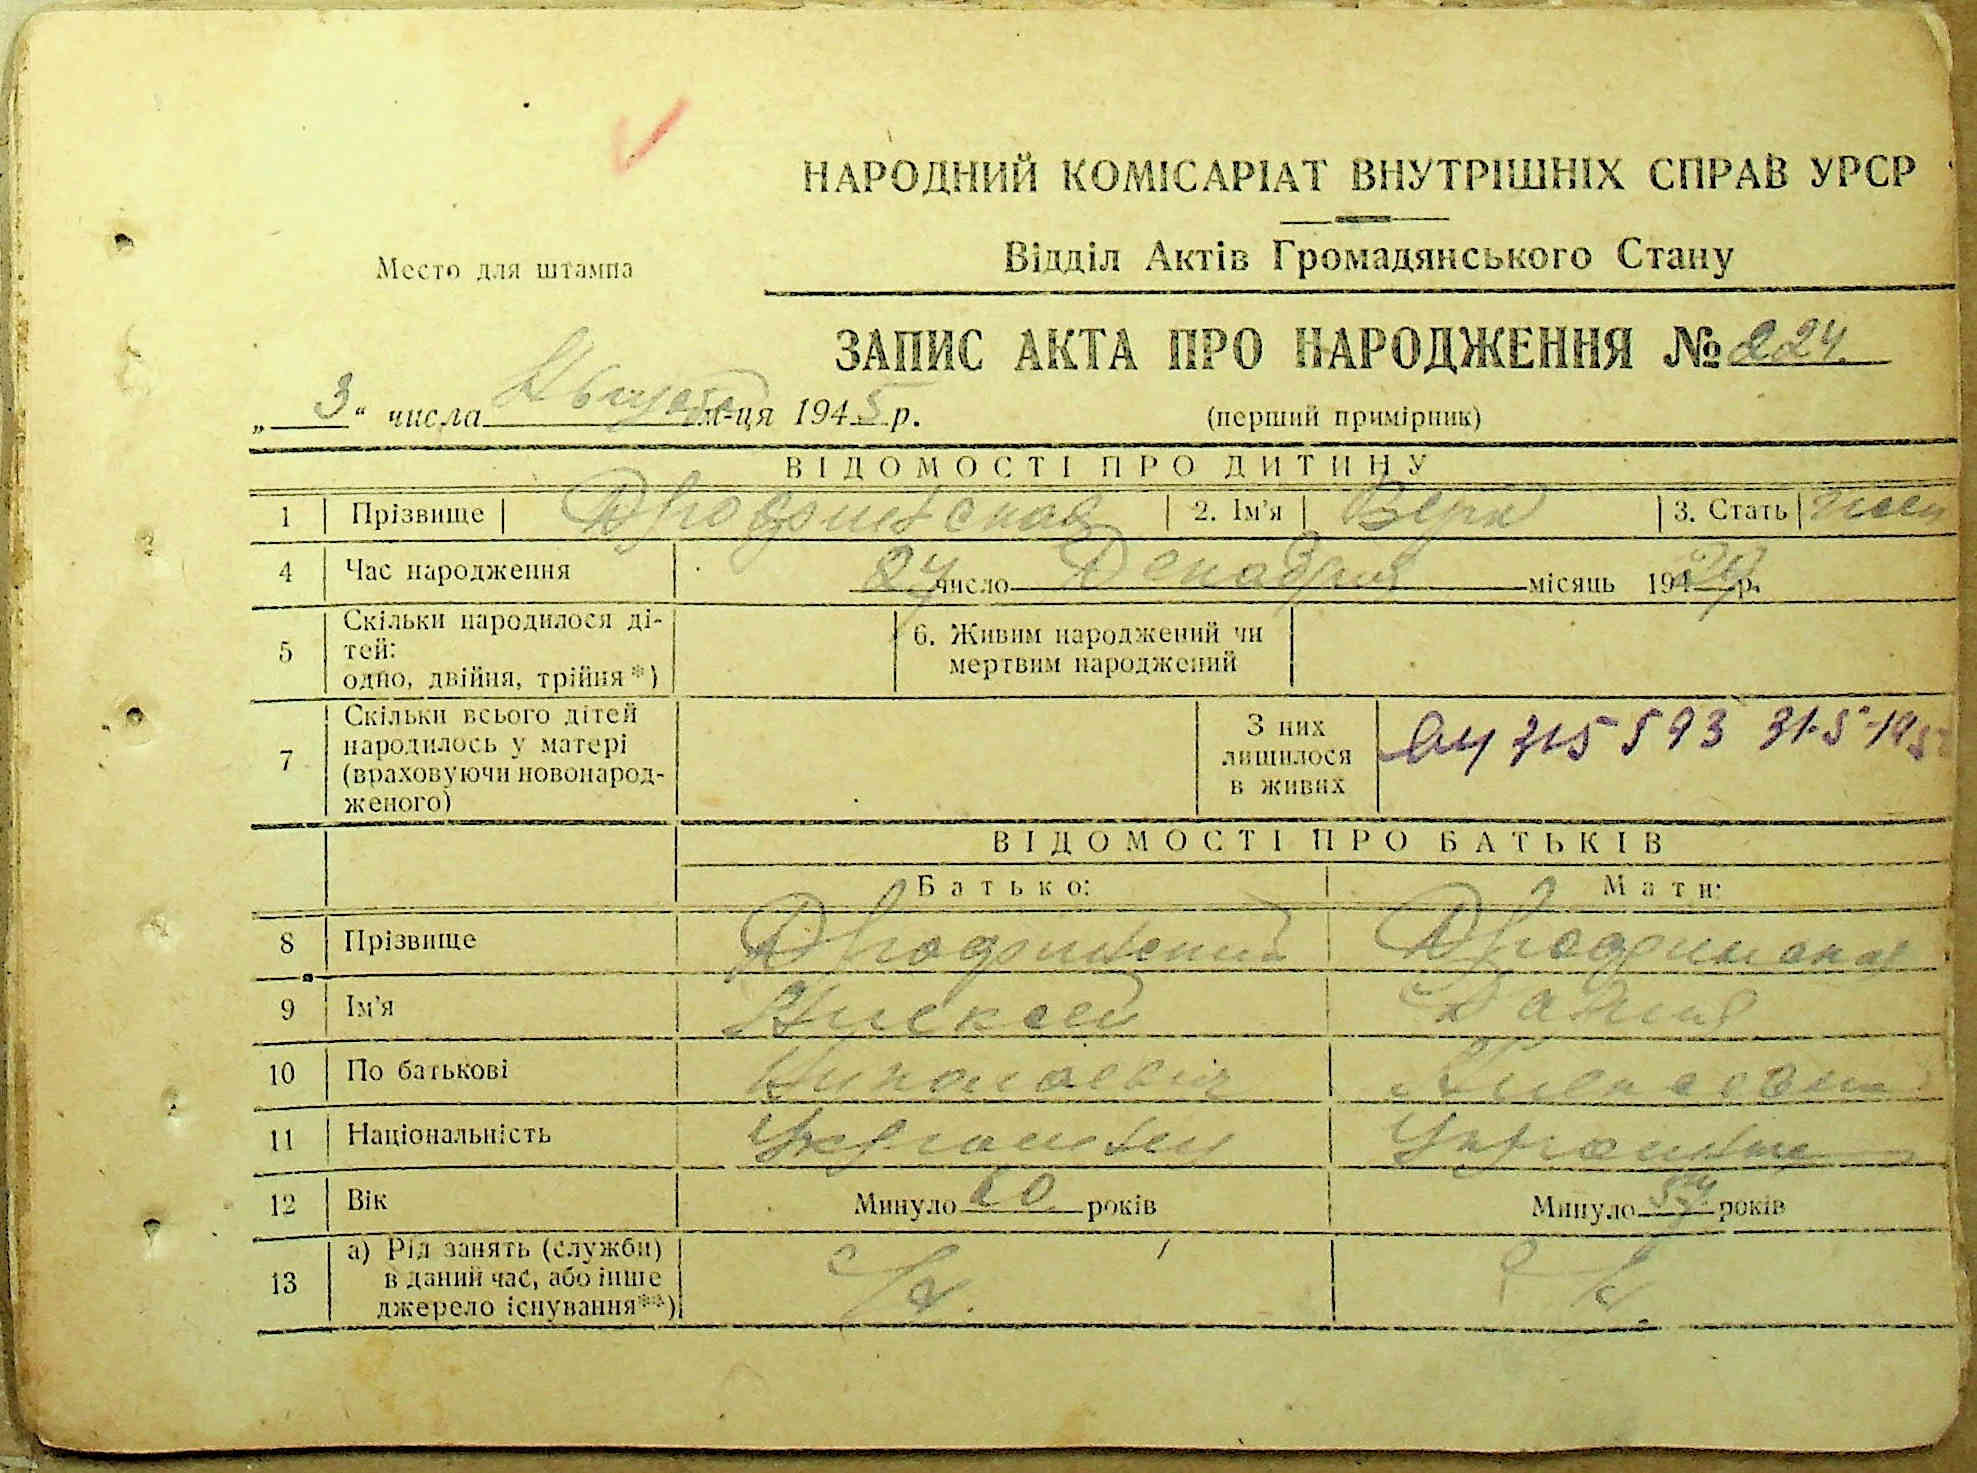 НАРОДНИЙ КОМІСАРІАТ ВНУТРІШНІХ СПРАВ УРСР
Место для штампа
Відділ Актів Громадянського Стану
ЗАПИС АКТА ПРО НАРОДЖЕННЯ № 224.
„3“ числа Августа м-ця 1945 р.
(перший примірник)
ВІДОМОСТІ ПРО ДИТИНУ
1 Прізвище 2. Ім'я Вера 3. Стать жен
4 Час народження число Декабря місяць 19 р.
5 Скільки народилося ді-
тей:
одно, двійня, трійня*)
6. Живим народжений чи
мертвим народжений
7 Скільки всього дітей
народилось у матері
(враховуючи новонарод-
женого)
З них
лишилося
в живих
315593 31-5-195
ВІДОМОСТІ ПРО БАТЬКІВ
Батько: Мати:
8 Прізвище
9 Ім'я Алексей
10 По батькові Николаевич Алексеевна
11 Національність Украинец Украинка
12 Вік Минуло 60 років Минуло років
13 а) Рід занять (служби)
в даний час, або інше
джерело існування**)